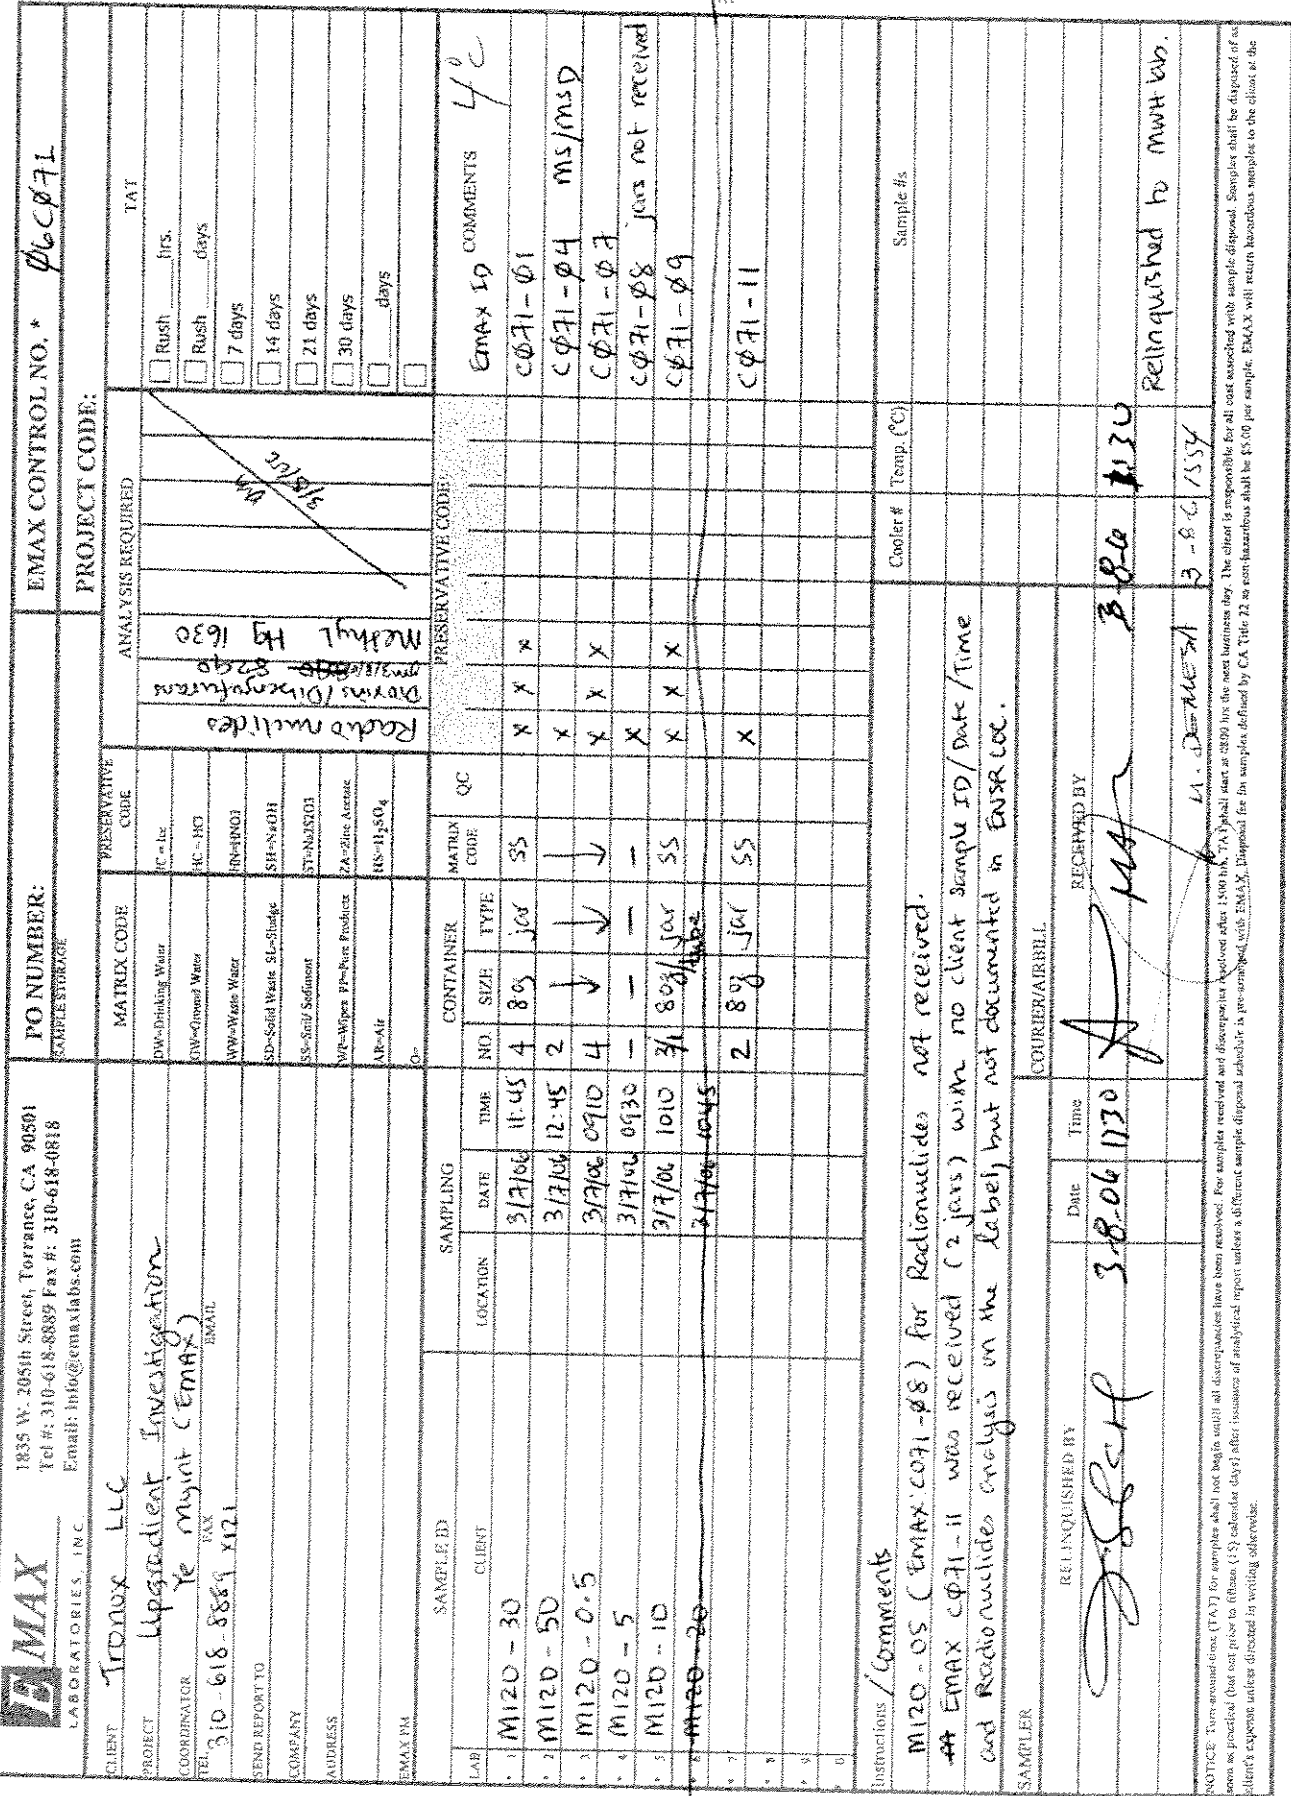 EMAX
LABORATORIES, INC.
1835 W. 205th Street, Torrance, CA 90501
Tel #: 310-618-8889 Fax #: 310-618-0818
Email: info@emaxlabs.com
PO NUMBER:
SAMPLE STORAGE
EMAX CONTROL NO. * Ø6CØ71
PROJECT CODE:
CLIENT Tronox LLC
PROJECT Upgradient Investigation
COORDINATOR Ye Myint (EMAX)
TEL 310-618-8889 X121 FAX EMAIL
SEND REPORT TO
COMPANY
ADDRESS
EMAX PM
MATRIX CODE
DW=Drinking Water
GW=Ground Water
WW=Waste Water
SD=Solid Waste SL=Sludge
SS=Soil/ Sediment
WP=Wipes PP=Pure Products
AR=Air
O=
PRESERVATIVE CODE
IC = Ice
HC = HCl
HN=HNO3
SH=NaOH
ST=Na2S2O3
ZA=Zinc Acetate
HS=H2SO4
ANALYSIS REQUIRED
Radionuclides
Dioxins/Dibenzofurans
8290
Methyl Hg 1630
TAT
Rush ___ hrs.
Rush ___ days
7 days
14 days
21 days
30 days
___ days
SAMPLE ID
SAMPLING
CONTAINER
MATRIX CODE
QC
PRESERVATIVE CODE
EMAX ID COMMENTS 4°C
LAB CLIENT LOCATION DATE TIME NO. SIZE TYPE
1 M120-30 3/7/06 11:45 4 8oz jar SS X X X CØ71-Ø1
2 M120-50 3/7/06 12:45 2 X CØ71-Ø4 MS/MSD
3 M120-0.5 3/7/06 0910 4 X X X CØ71-Ø7
4 M120-5 3/7/06 0930 - - - - X CØ71-Ø8 jars not received
5 M120-10 3/7/06 1010 3/1 8oz/ jar/tube SS X X X CØ71-Ø9
6 M120-20 3/7/06 1045
7 2 8oz jar SS X CØ71-11
8
9
0
Instructions / Comments
M120-05 (EMAX: C071-Ø8) for Radionuclides not received.
EMAX CØ71-11 was received (2 jars) with no client sample ID/Date/Time
and Radionuclides analysis on the label, but not documented in ENSR COC.
Cooler # Temp. (°C) Sample #s
SAMPLER
COURIER/AIRBILL
RELINQUISHED BY Date Time RECEIVED BY
3-8-06 1130 3-8-6 1130
3-8-6 1554
Relinquished to MWH Lab.
NOTICE: Turn-around-time (TAT) for samples shall not begin until all discrepancies have been resolved. For samples received and discrepancies resolved after 1500 hrs, TAT shall start at 0800 hrs the next business day. The client is responsible for all cost associated with sample disposal. Samples shall be disposed of as
soon as practical (but not prior to fifteen (15) calendar days) after issuance of analytical report unless a different sample disposal schedule is pre-arranged with EMAX. Disposal fee for samples defined by CA Title 22 as non-hazardous shall be $5.00 per sample. EMAX will return hazardous samples to the client at the
client's expense unless directed in writing otherwise.